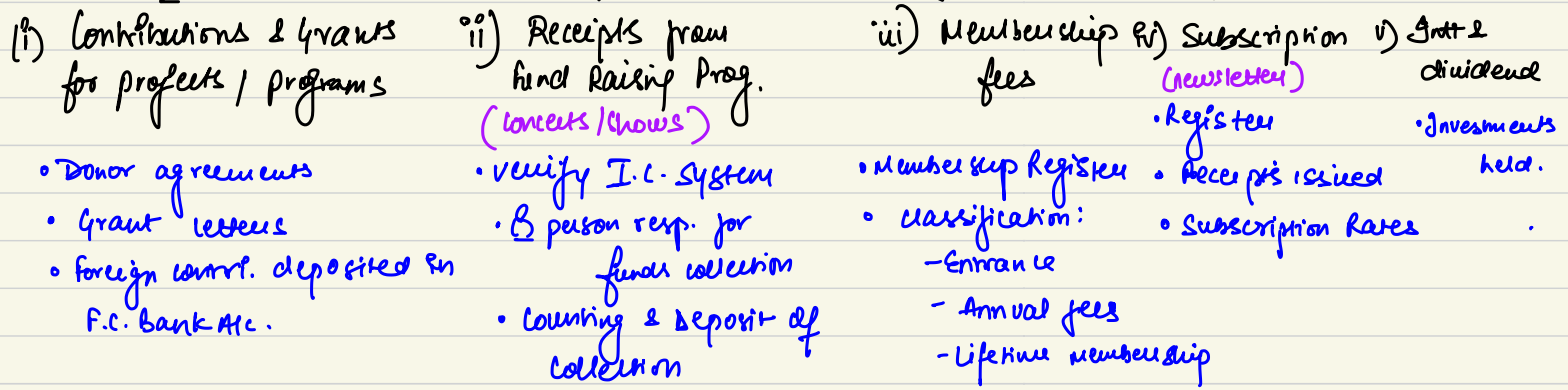 (i) Contributions & Grants
for projects / programs
• Donor agreements
• Grant letters
• Foreign contri. deposited in
F.C. Bank A/c.
ii) Receipts from
Fund Raising Prog.
(concerts/shows)
• Verify I.C. System
• & person resp. for
funds collection
• Counting & Deposit of
Collection
iii) Membership
fees
• Membership Register
• Classification:
- Entrance
- Annual fees
- Lifetime membership
iv) Subscription
(newsletter)
• Register
• Receipts issued
• Subscription Rates
v) Intt &
dividend
• Investments
held.